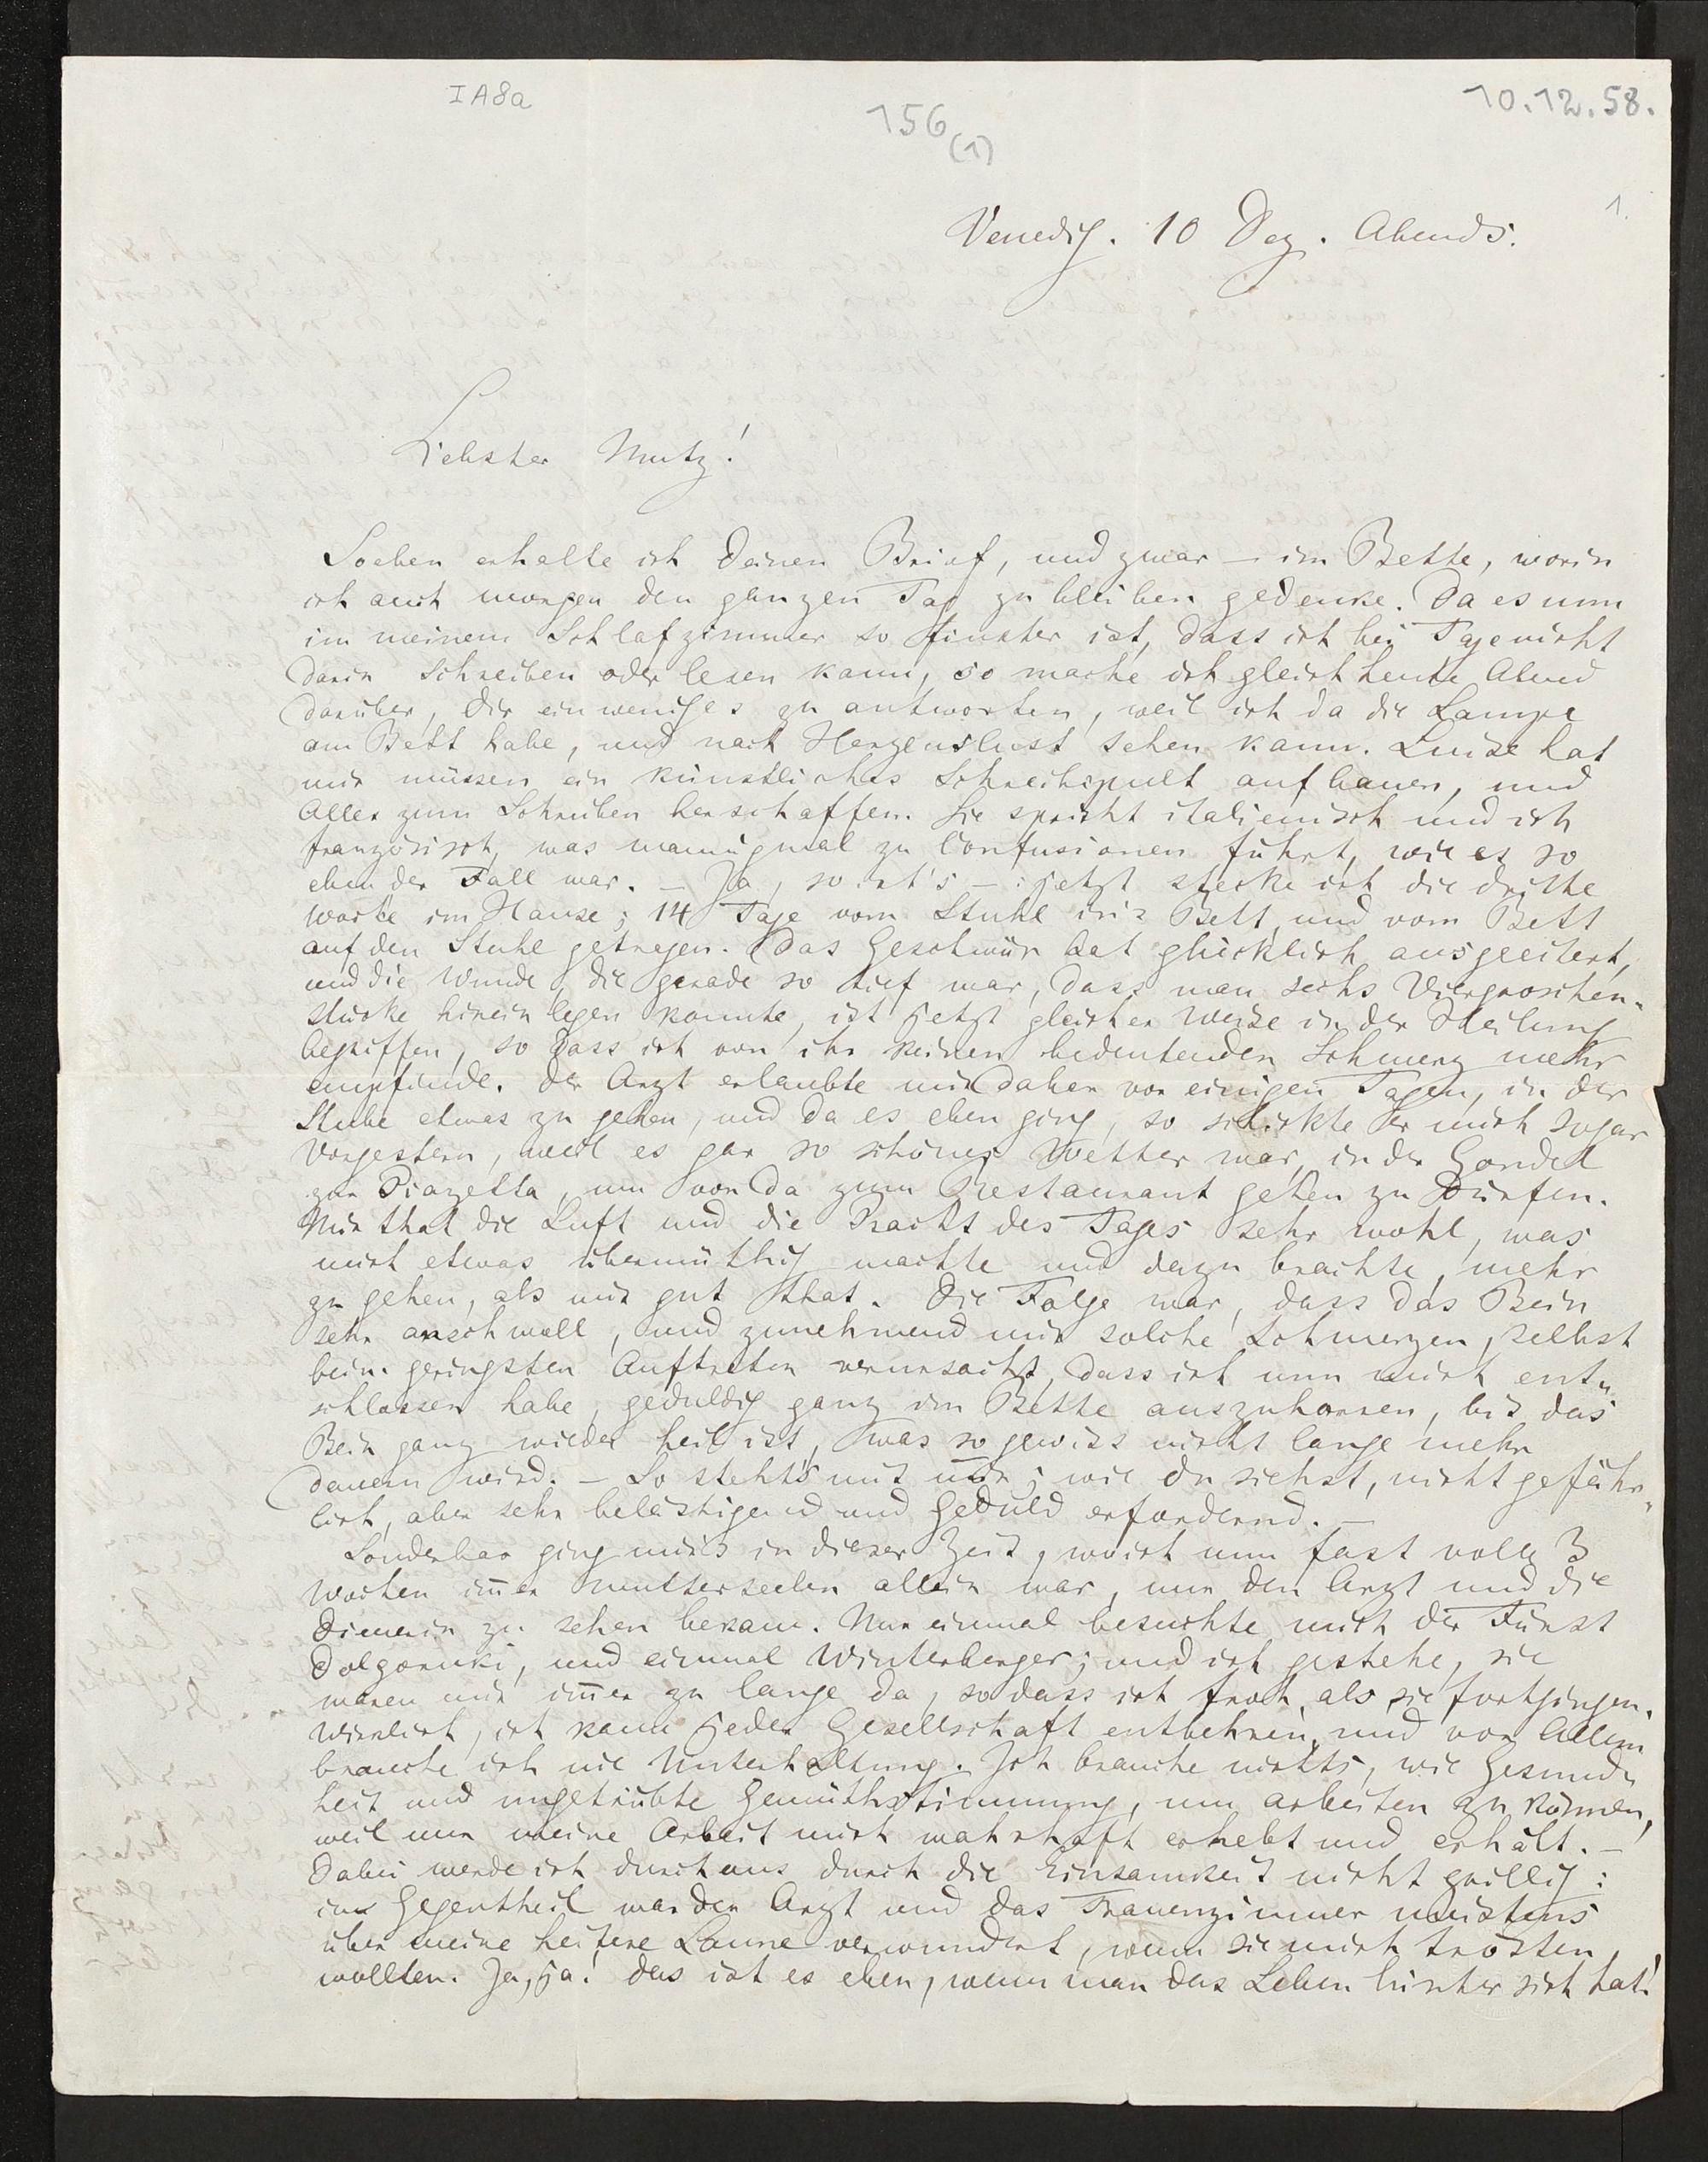 IA8a
156
(1)
10.12.58.
1.
Venedig. 10 Dez. Abends.
Liebster Mutz!
Soeben erhalte ich Deinen Brief, und zwar – im Bette, worin
ich auch morgen den ganzen Tag zu bleiben gedenke. Da es nun
in meinem Schlafzimmer so finster ist, dass ich bei Tage nicht
darin schreiben oder lesen kann, so mache ich gleich heute Abend
darüber, Dir ein weniges zu antworten, weil ich da die Lampe
am Bett habe, und nach Herzenslust sehen kann. Luise hat
mir müssen ein künstliches Schreibpult aufbauen, und
Alles zum Schreiben herschaffen. Sie spricht italienisch und ich
französisch, was mannigmal zu Confusionen führt, wie es so
eben der Fall war. – Ja, so ist's –: jetzt stecke ich die dritte
Woche im Hause; 14 Tage vom Stuhl in's Bett, und vom Bett
auf den Stuhl getragen. Das Geschwür hat glücklich ausgeeitert,
und die Wunde, die gerade so tief war, dass man sechs Viergroschen-
stücke hinein legen konnte, ist jetzt gleicher Weise in der Heilung
begriffen, so dass ich von ihr keinen bedeutenden Schmerz mehr
empfinde. Der Arzt erlaubte mir daher vor einigen Tagen, in der
Stube etwas zu gehen, und da es eben ging, so schickte er mich sogar
vorgestern, weil es gar so schönes Wetter war, in der Gondel
zur Piazetta, um von da zum Restaurant gehen zu dürfen.
Mir that die Luft und die Pracht des Tages sehr wohl, was
mich etwas übermüthig machte und dazu brachte, mehr
zu gehen, als mir gut that. Die Folge war, dass das Bein
sehr anschwoll, und zunehmend mir solche Schmerzen, selbst
beim geringsten Auftreten verursacht, dass ich nun mich ent-
schlossen habe, geduldig ganz im Bette auszuharren, bis das
Bein ganz wieder heil ist, was so gewiss nicht lange mehr
dauern wird. – So steht's mit mir; wie du siehst, nicht gefähr-
lich, aber sehr belästigend und Geduld erfordernd. –
Sonderbar ging mir's in dieser Zeit, wo ich nun fast volle 3
Wochen im̄er mutterseelen allein war, nur den Arzt und die
Dienerin zu sehen bekam. Nur einmal besuchte mich der Fürst
Dolgoruki, und einmal Winterberger; und ich gestehe, sie
waren mir im̄er zu lange da, so dass ich froh, als sie fortgingen.
Wirklich, ich kann jeder Gesellschaft entbehren, und vor Allem
brauche ich nie Unterhaltung. Ich brauche nichts, wie Gesund-
heit und ungetrübte Gemüthsstimmung, um arbeiten zu können,
weil nur meine Arbeit mich wahrhaft erhebt und erhält. –
Dabei werde ich durchaus durch die Einsamkeit nicht grillig:
im Gegentheil war der Arzt und das Frauenzimmer meistens
über meine heitere Laune verwundert, wenn sie mich trösten
wollten. Ja, ja! das ist es eben, wenn man das Leben hinter sich hat!